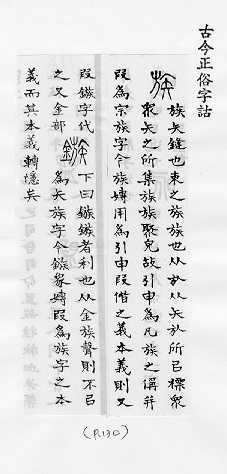 古今正俗字詁
族
族矢鏠也束之族族也从㫃从矢㫃所㠯標眾
眾矢之所集族族聚皃故引申爲凡族之偁幷
叚爲宗族字今族嫥用爲引申叚借之義本義則又
叚鏃字代
之又金部
鏃
下曰鏃鏃者利也从金族聲則不㠯
爲矢族字今鏃㒸嫥叚爲族字之本
義而其本義轉隱矣
(P.130)